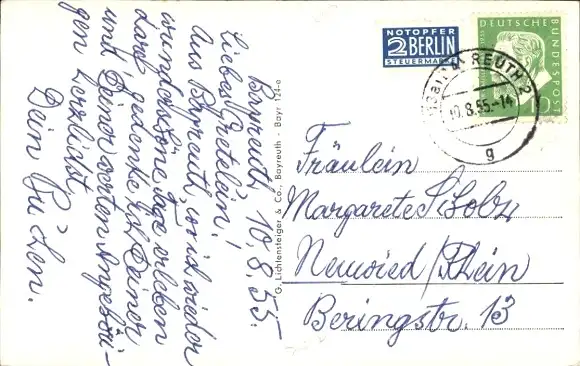 Bayreuth 10.8.55.
Liebes Gretelein!
Aus Bayreuth, wo ich wieder
wunderschöne Tage erleben
darf, gedenke ich Deiner
und Deiner werten Angehöri-
gen herzlichst
Dein
G. Lichtensteiger & Co., Bayreuth - Bayr
NOTOPFER
2 BERLIN
STEUERMARKE
DEUTSCHE BUNDESPOST
10
REUTH 2
10.8.55.-14
g
Fräulein
Margarete
Neuwied/Rhein
Beringstr. 13